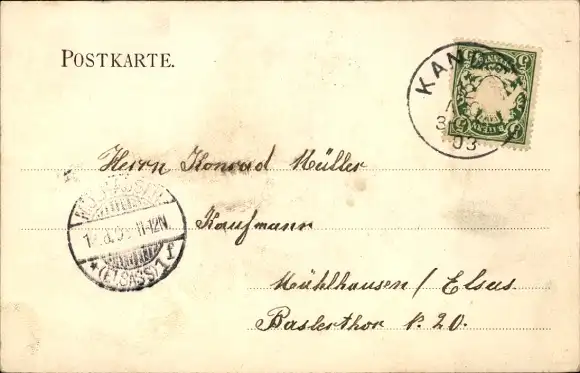 POSTKARTE.
KAN
3
03
Herrn Konrad Müller
Kaufmann
Mühlhausen / Elsas
Baslerthor N. 20.
11-12N
*(ELSASS)1